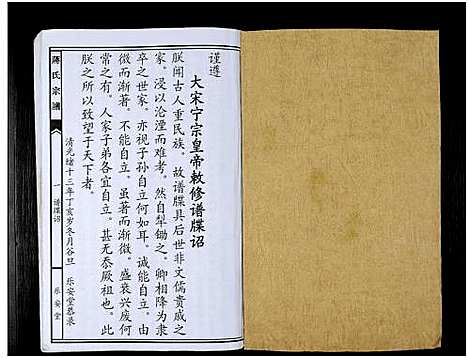 谨遵
大宋宁宗皇帝敕修谱牒诏
朕闻古人重民族，故谱牒具后世非文儒贵戚之
家。浸以沦湮而难考。然自犁锄之。卿相降为隶
卒之世家。亦视子孙自立何如耳。诚能自立。
微而渐著。不能自立。虽著而渐微。盛衰兴废何
常之有。人家子弟各宜自立。甚无忝厥祖也。此
朕之所以致望于天下者。
清光绪十三年丁亥岁冬月谷旦
乐安堂恭录
蒋氏宗谱
一
谱牒诏
乐安堂